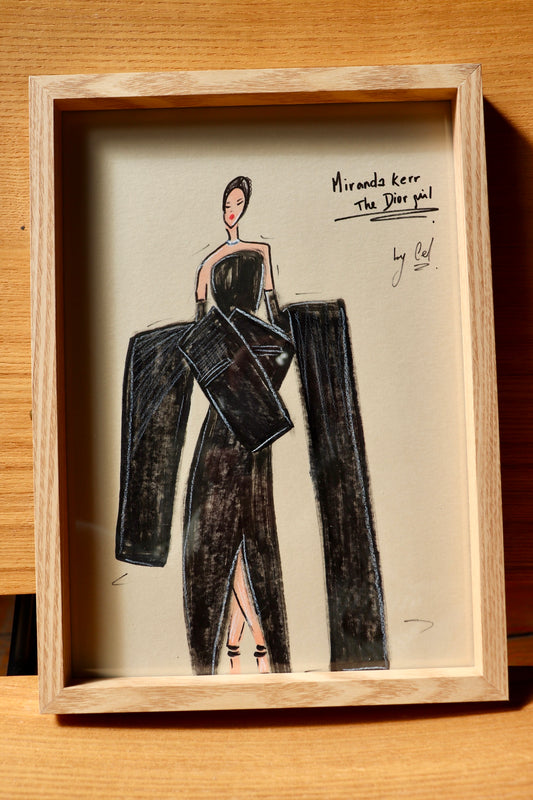 Miranda Kerr
The Dior girl
by Cel.